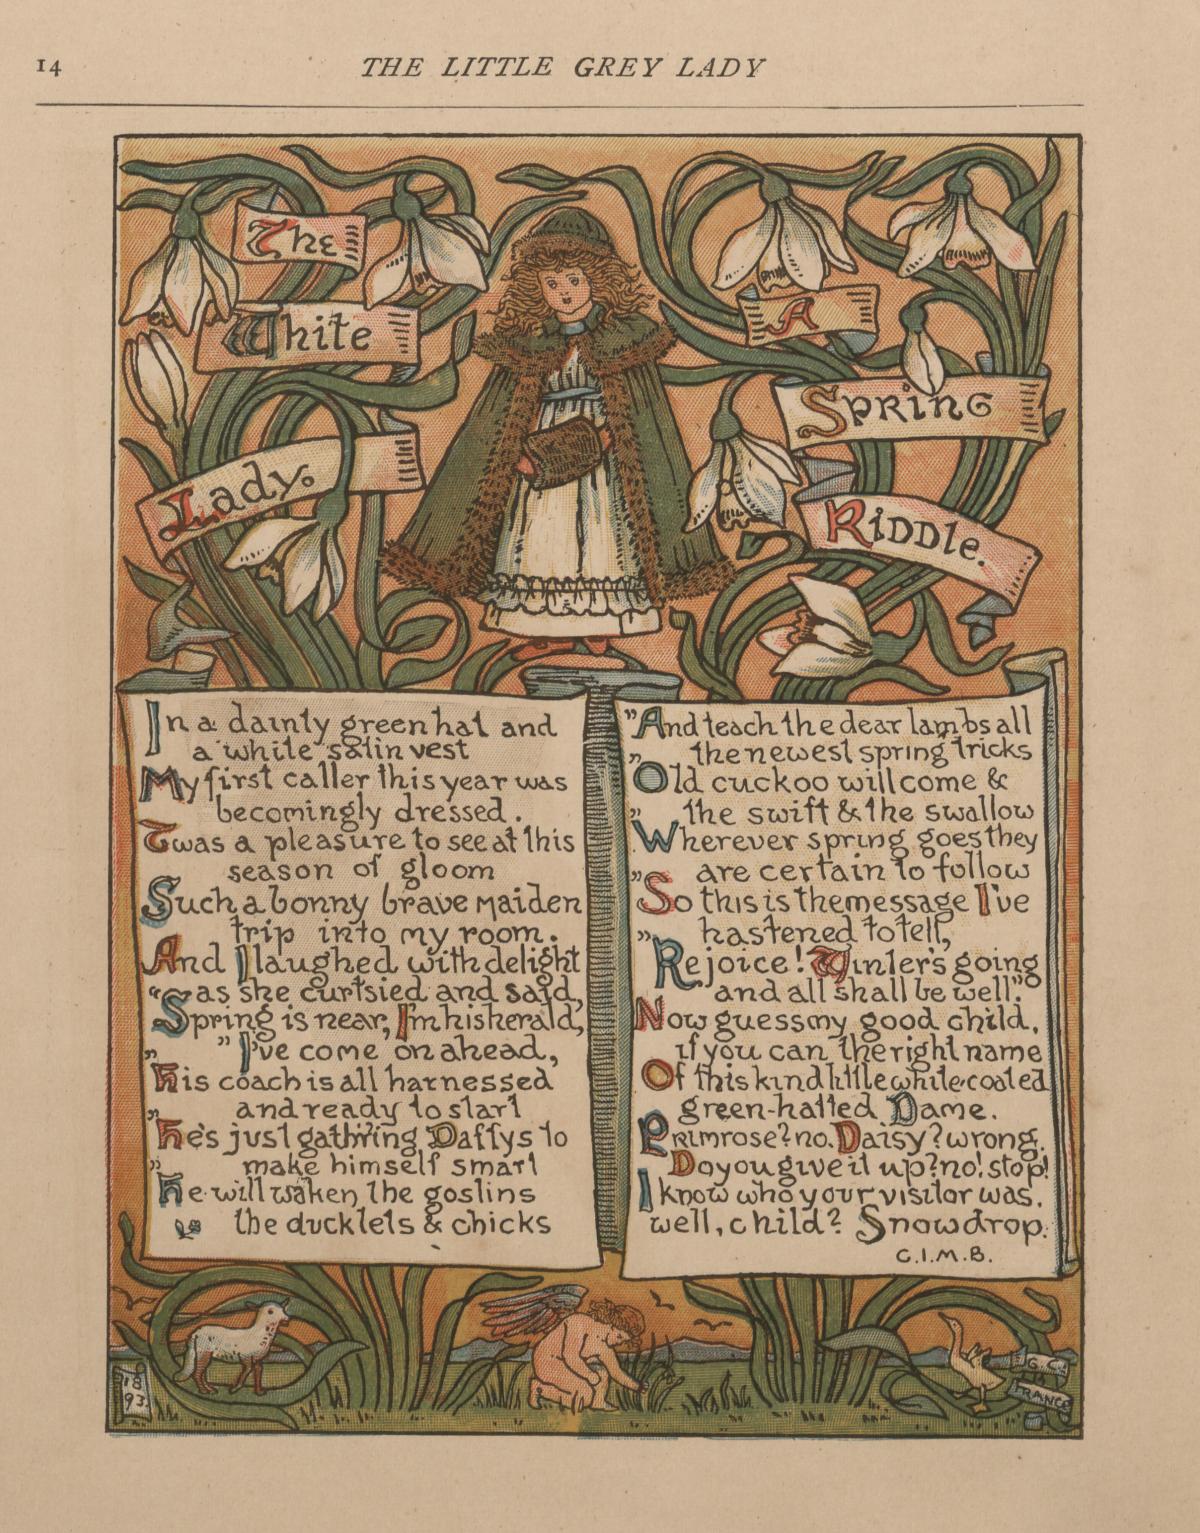 14
THE LITTLE GREY LADY
The
White
Lady.
A
Spring
Riddle.
In a dainty green hat and
a white satin vest
My first caller this year was
becomingly dressed.
Twas a pleasure to see at this
season of gloom
Such a bonny brave maiden
trip into my room.
And I laughed with delight
as she curtsied and said,
"Spring is near, I'm his herald,
" I've come on ahead,
"His coach is all harnessed
and ready to start
"He's just gath'ring Daffys to
make himself smart
"He will waken the goslins
the ducklets & chicks
"And teach the dear lambs all
the newest spring tricks
"Old cuckoo will come &
the swift & the swallow
"Wherever spring goes they
are certain to follow
"So this is the message I've
hastened to tell,
"Rejoice! Winter's going
and all shall be well."
Now guess my good child,
if you can the right name
Of this kind little white-coated
green-hatted Dame.
Primrose? no. Daisy? wrong.
Do you give it up? no! stop!
I know who your visitor was.
well, child? Snowdrop.
C.I.M.B.
18
93
G.C.
FRANCE